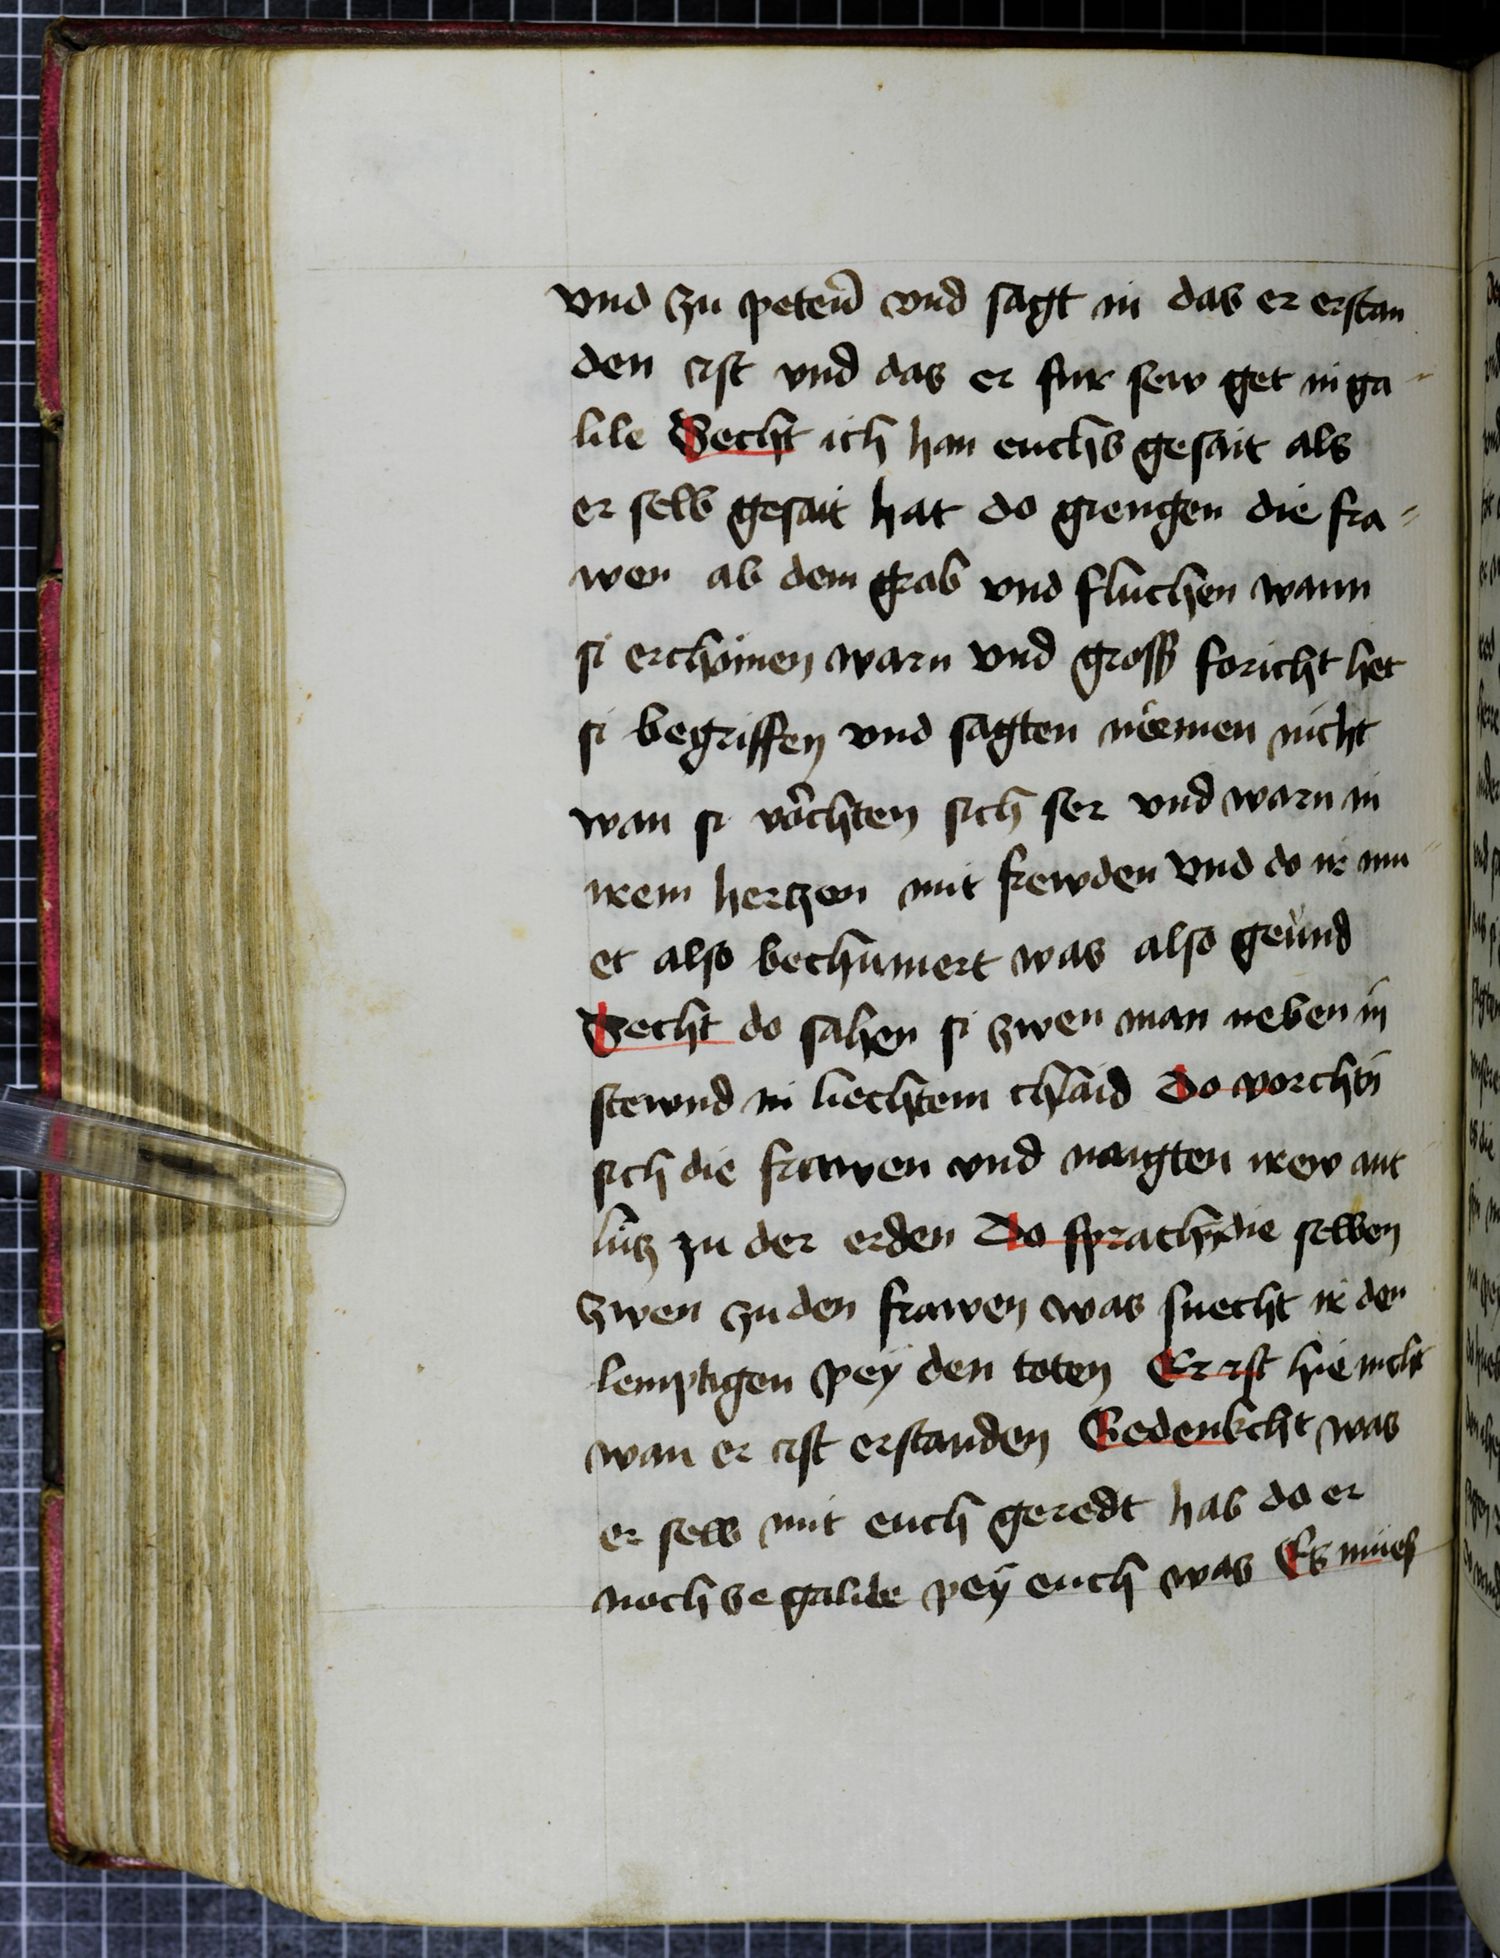 vnd zu peterñ vnd sagt in das er erstan
den ist vnd das er fur sew get in ga
lile Secht ich han euchs gesait als
er selb gesait hat do giengen die fra
wen ab dem grab vnd fluchen wann
si erchömen warn vnd gross foricht het
si begriffen vnd sagten niemen nicht
wan si vörchten sich ser vnd warn in
irem hertzen mit frewden vnd do ir mu
et also bechümert was also geund
Secht do sahen si zwen man neben in
stewnd in liechtem chlaid Do vorchtn̄
sich die frawen vnd naigten irew ant
lütz zu der erden Do sprachn̄ die selben
zwen zu den frawen was suecht ir den
lemptigen pey den toten Er ist hie nicht
wan er ist erstanden Gedenkcht was
er selb mit euch geredt hab do er
noch ze galilee pey euch was Es mües